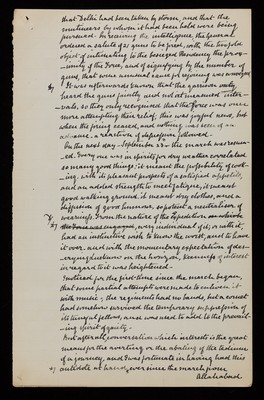 that Delhi had been taken by storm, and that the
mutineers by whom it had been held were being
pursued. On receiving the intelligence, the General
ordered a salute of 21 guns to be fired, with the twofold
object of intimating to the besieged Residency the prox-
-imity of the Force, and of signifying by the number of
guns, that some unusual cause for rejoicing was
It was afterwards known that the garrison only
heard the guns faintly and not at measured inter-
-vals, so they only recognised that the Force was once
more attempting their relief; this was joyful news, but
when the firing ceased, and nothing was seen of an
advance, a reaction of depression followed.
On the next day - September 23rd - the march was resum-
-ed. Every one was in spirits for dry weather correlated
so many good things; it meant the probability of cook-
-ing, with its pleasant prospects of a satisfied appetite,
and an added strength to meet fatigue, it meant
good walking ground, it meant dry clothes, and a
diffusion of good humour, as potent a neutralizer of
weariness. From the nature of the Expedition on which
the Force was engaged, every individual of it, or with it,
had an instinctive wish to know the worst, and to have
it over, and with the momentary expectation of des-
-crying Lucknow on the horizon, keenness of interest
in regard to it was heightened.
I noticed for the first time since the march began,
that some partial attempts were made to enliven it
with music; the regiments had no bands, but a cornet
had somehow survived the temporary suppression of
its tuneful fellows, and was used to add to the prevail-
-ing spirit of gaiety.
But after all, conversation which interests is the great
means for the averting or the abating of the tedium
of a journey, and I was fortunate in having had this
antidote at hand, ever since the march from
Allahabad